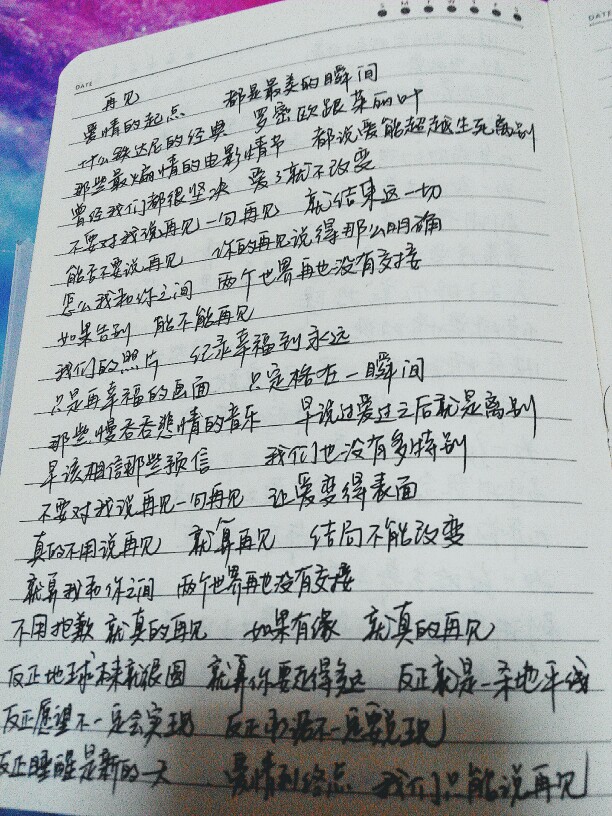 S M T W T F S
DATE
DATE
再见
爱情的起点 都是最美的瞬间
什么铁达尼的经典 罗密欧跟茱丽叶
那些最煽情的电影情节 都说爱能超越生死离别
曾经我们都很坚决 爱了就不改变
不要对我说再见 一句再见 就结束这一切
能否不要说再见 你的再见说得那么明确
怎么我和你之间 两个世界再也没有交接
如果告别 能不能再见
我们的照片 纪录幸福到永远
只是再幸福的画面 只定格在一瞬间
那些慢吞吞悲情的音乐 早说过爱过之后就是离别
早该相信那些预信 我们也没有多特别
不要对我说再见 一句再见 让爱变得表面
真的不用说再见 就算再见 结局不能改变
就算我和你之间 两个世界再也没有交接
不用抱歉 就真的再见 如果有缘 就真的再见
反正地球本来就很圆 就算你要走得多远 反正就是一条地平线
反正愿望不一定会实现 反正承诺不一定要兑现
反正睡醒是新的一天 爱情到终点 我们只能说再见